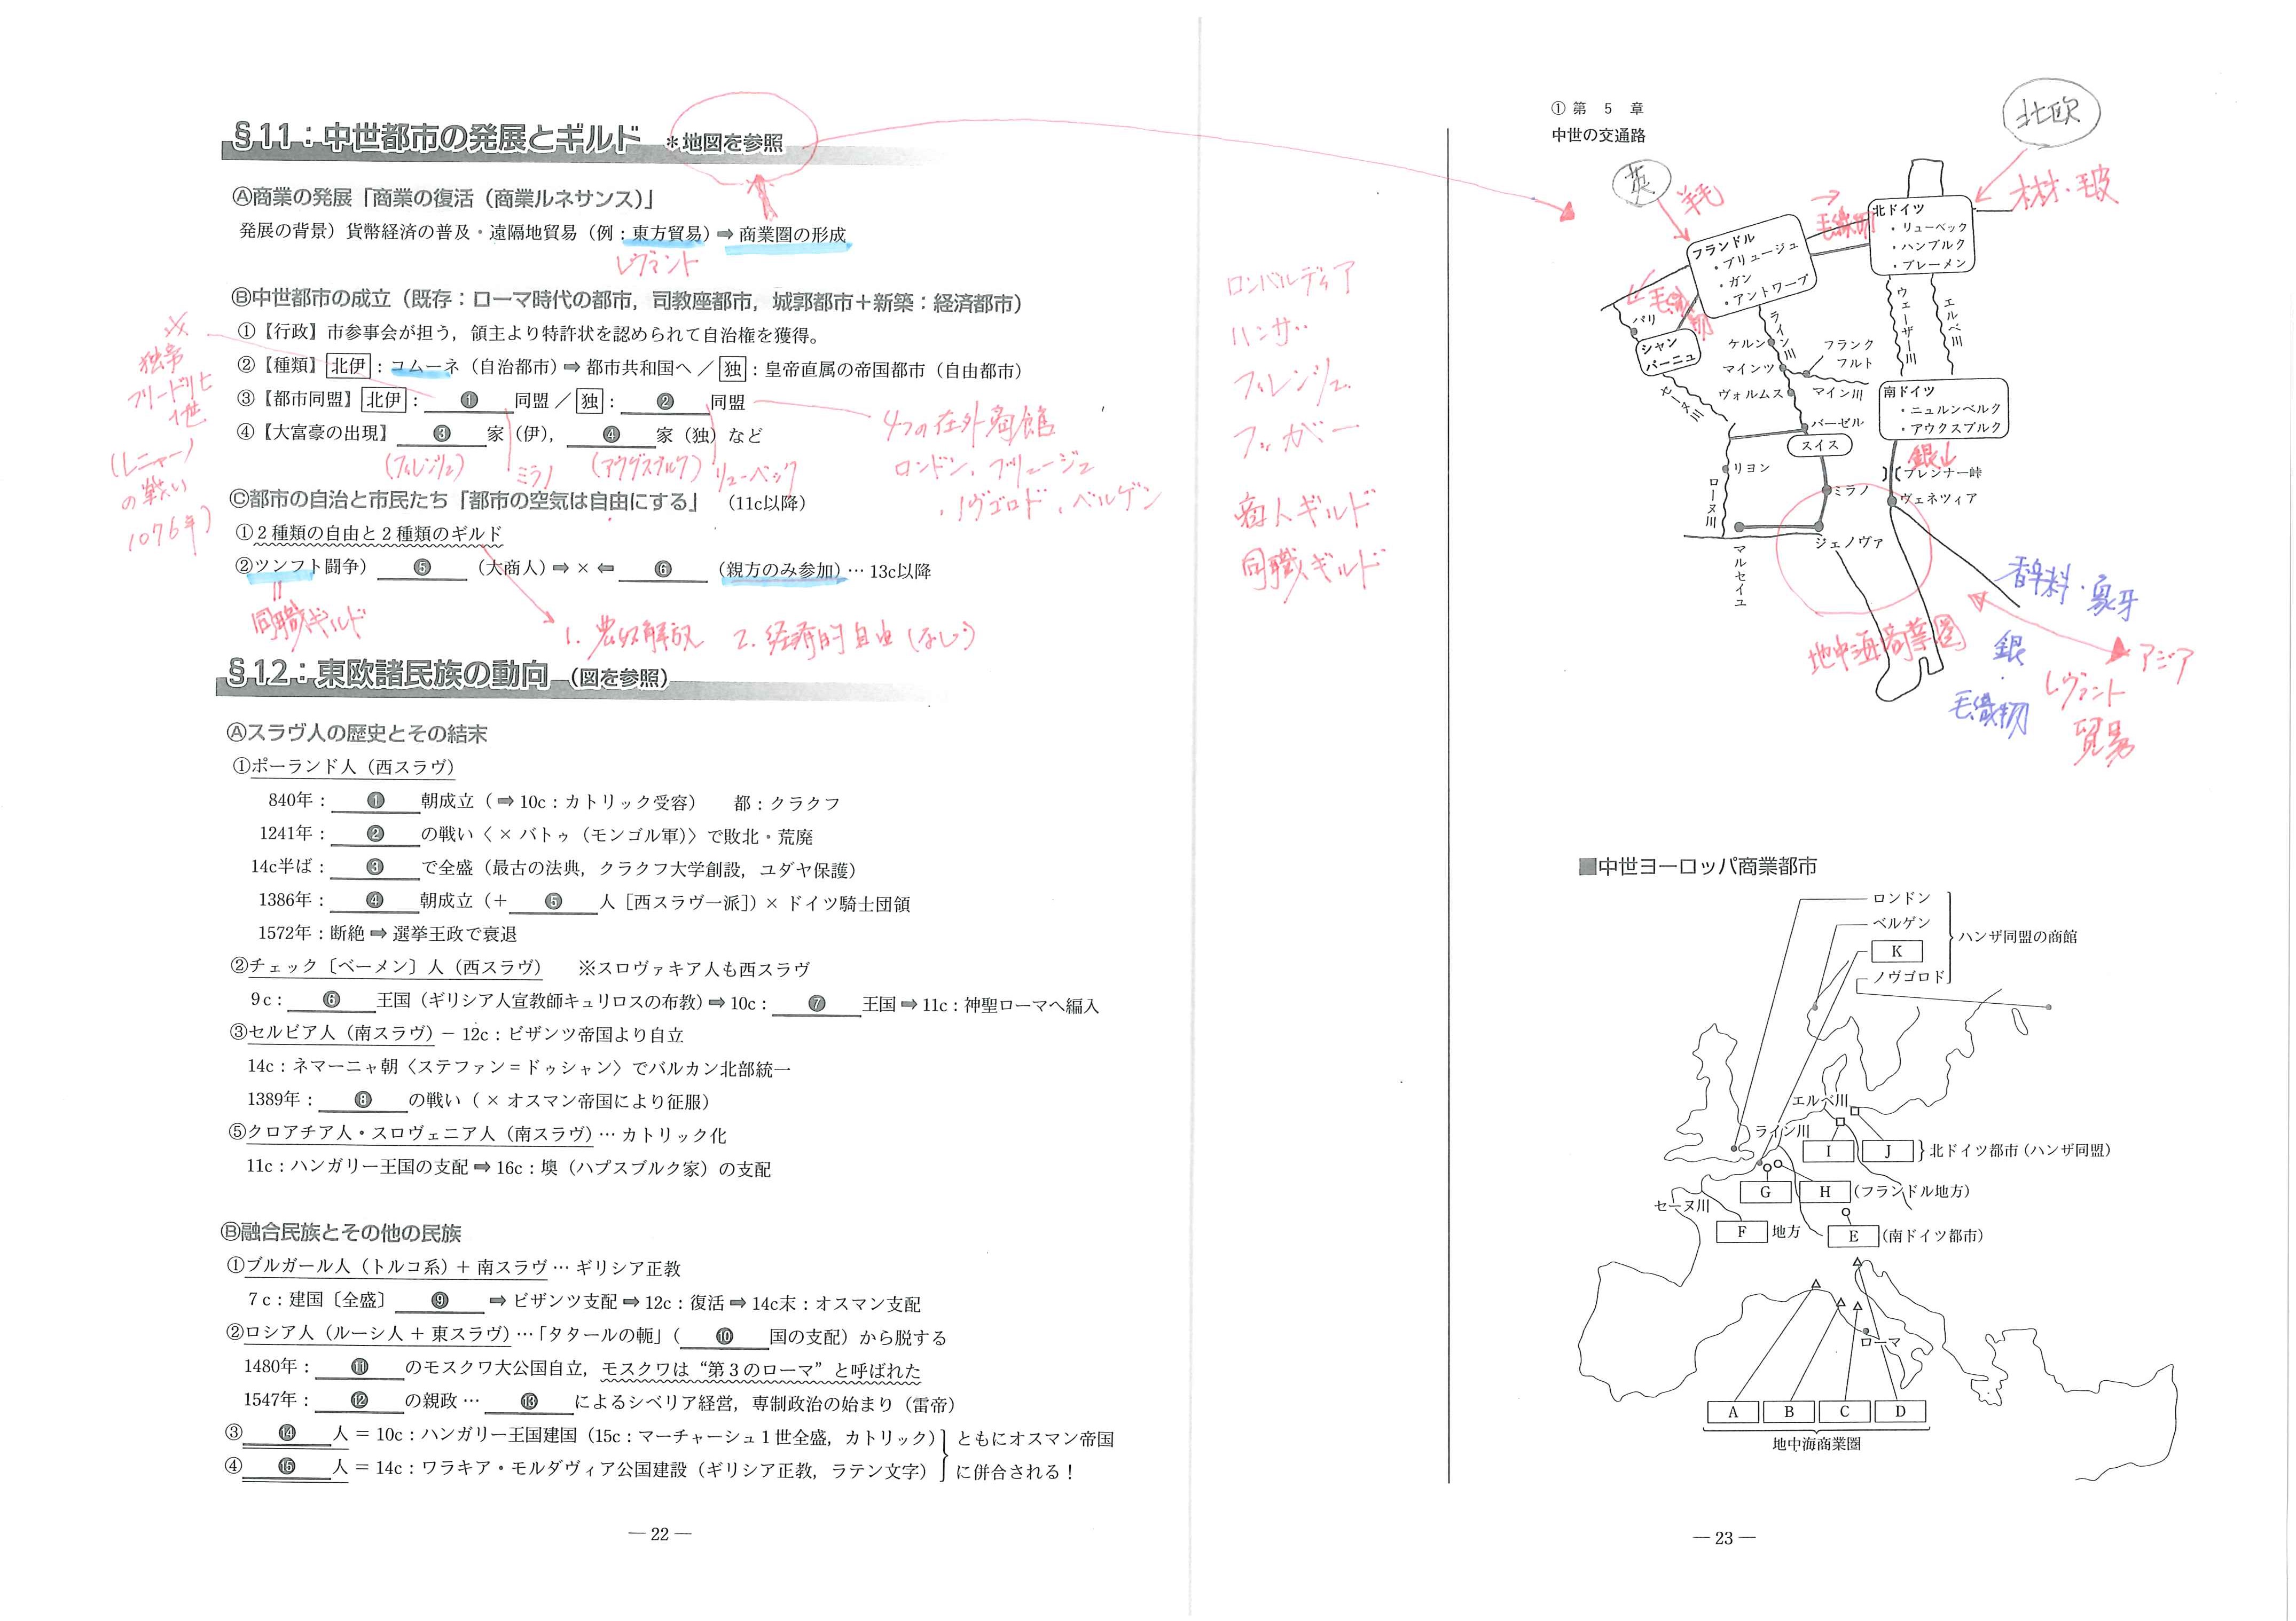 §11：中世都市の発展とギルド　＊地図を参照
Ⓐ商業の発展「商業の復活（商業ルネサンス）」
発展の背景）貨幣経済の普及・遠隔地貿易（例：東方貿易）⇒ 商業圏の形成
レヴァント
Ⓑ中世都市の成立（既存：ローマ時代の都市，司教座都市，城郭都市＋新築：経済都市）
①【行政】市参事会が担う，領主より特許状を認められて自治権を獲得。
②【種類】北伊：コムーネ（自治都市）⇒ 都市共和国へ ／ 独：皇帝直属の帝国都市（自由都市）
③【都市同盟】北伊：❶同盟 ／ 独：❷同盟
④【大富豪の出現】❸家（伊），❹家（独）など
（フィレンツェ）　ミラノ　（アウグスブルク）　リューベック
4つの在外商館
ロンドン、ブリュージュ
、ノヴゴロド、ベルゲン
※
独帝
フリードリヒ
1世
（レニャーノ
の戦い
1076年）
Ⓒ都市の自治と市民たち「都市の空気は自由にする」（11c以降）
①2種類の自由と2種類のギルド
②ツンフト闘争）❺（大商人）⇒ × ⇐ ❻（親方のみ参加）… 13c以降
同職ギルド
1. 農奴解放　2. 経済的自由（なし）
§12：東欧諸民族の動向（図を参照）
Ⓐスラヴ人の歴史とその結末
①ポーランド人（西スラヴ）
840年：❶朝成立（⇒ 10c：カトリック受容）　都：クラクフ
1241年：❷の戦い〈 × バトゥ（モンゴル軍）〉で敗北・荒廃
14c半ば：❸で全盛（最古の法典，クラクフ大学創設，ユダヤ保護）
1386年：❹朝成立（＋❺人［西スラヴ一派］）× ドイツ騎士団領
1572年：断絶 ⇒ 選挙王政で衰退
②チェック〔ベーメン〕人（西スラヴ）　※スロヴァキア人も西スラヴ
9c：❻王国（ギリシア人宣教師キュリロスの布教）⇒ 10c：❼王国 ⇒ 11c：神聖ローマへ編入
③セルビア人（南スラヴ）－ 12c：ビザンツ帝国より自立
14c：ネマーニャ朝〈ステファン＝ドゥシャン〉でバルカン北部統一
1389年：❽の戦い（ × オスマン帝国により征服）
⑤クロアチア人・スロヴェニア人（南スラヴ）… カトリック化
11c：ハンガリー王国の支配 ⇒ 16c：墺（ハプスブルク家）の支配
Ⓑ融合民族とその他の民族
①ブルガール人（トルコ系）＋ 南スラヴ … ギリシア正教
7c：建国〔全盛〕❾ ⇒ ビザンツ支配 ⇒ 12c：復活 ⇒ 14c末：オスマン支配
②ロシア人（ルーシ人 ＋ 東スラヴ）…「タタールの軛」（❿国の支配）から脱する
1480年：⓫のモスクワ大公国自立，モスクワは“第3のローマ”と呼ばれた
1547年：⓬の親政 … ⓭によるシベリア経営，専制政治の始まり（雷帝）
③⓮人 ＝ 10c：ハンガリー王国建国（15c：マーチャーシュ1世全盛，カトリック）
④⓯人 ＝ 14c：ワラキア・モルダヴィア公国建設（ギリシア正教，ラテン文字）
ともにオスマン帝国
に併合される！
― 22 ―
ロンバルディア
ハンザ
フィレンツェ
フッガー
商人ギルド
同職ギルド
① 第 5 章
中世の交通路
北欧
英
羊毛
毛織物
木材・毛皮
北ドイツ
・リューベック
・ハンブルク
・ブレーメン
フランドル
・ブリュージュ
・ガン
・アントワープ
毛織物
パリ
シャンパーニュ
セーヌ川
ライン川
ウェーザー川
エルベ川
ケルン
フランクフルト
マインツ
マイン川
ヴォルムス
バーゼル
スイス
南ドイツ
・ニュルンベルク
・アウクスブルク
銀山
ブレンナー峠
リヨン
ローヌ川
ミラノ
ヴェネツィア
ジェノヴァ
マルセイユ
香辛料・象牙
地中海商業圏
銀
・
毛織物
アジア
レヴァント
貿易
■中世ヨーロッパ商業都市
ロンドン
ベルゲン
K
ノヴゴロド
ハンザ同盟の商館
エルベ川
ライン川
I
J
北ドイツ都市（ハンザ同盟）
G
H
（フランドル地方）
セーヌ川
F
地方
E
（南ドイツ都市）
ローマ
A
B
C
D
地中海商業圏
― 23 ―